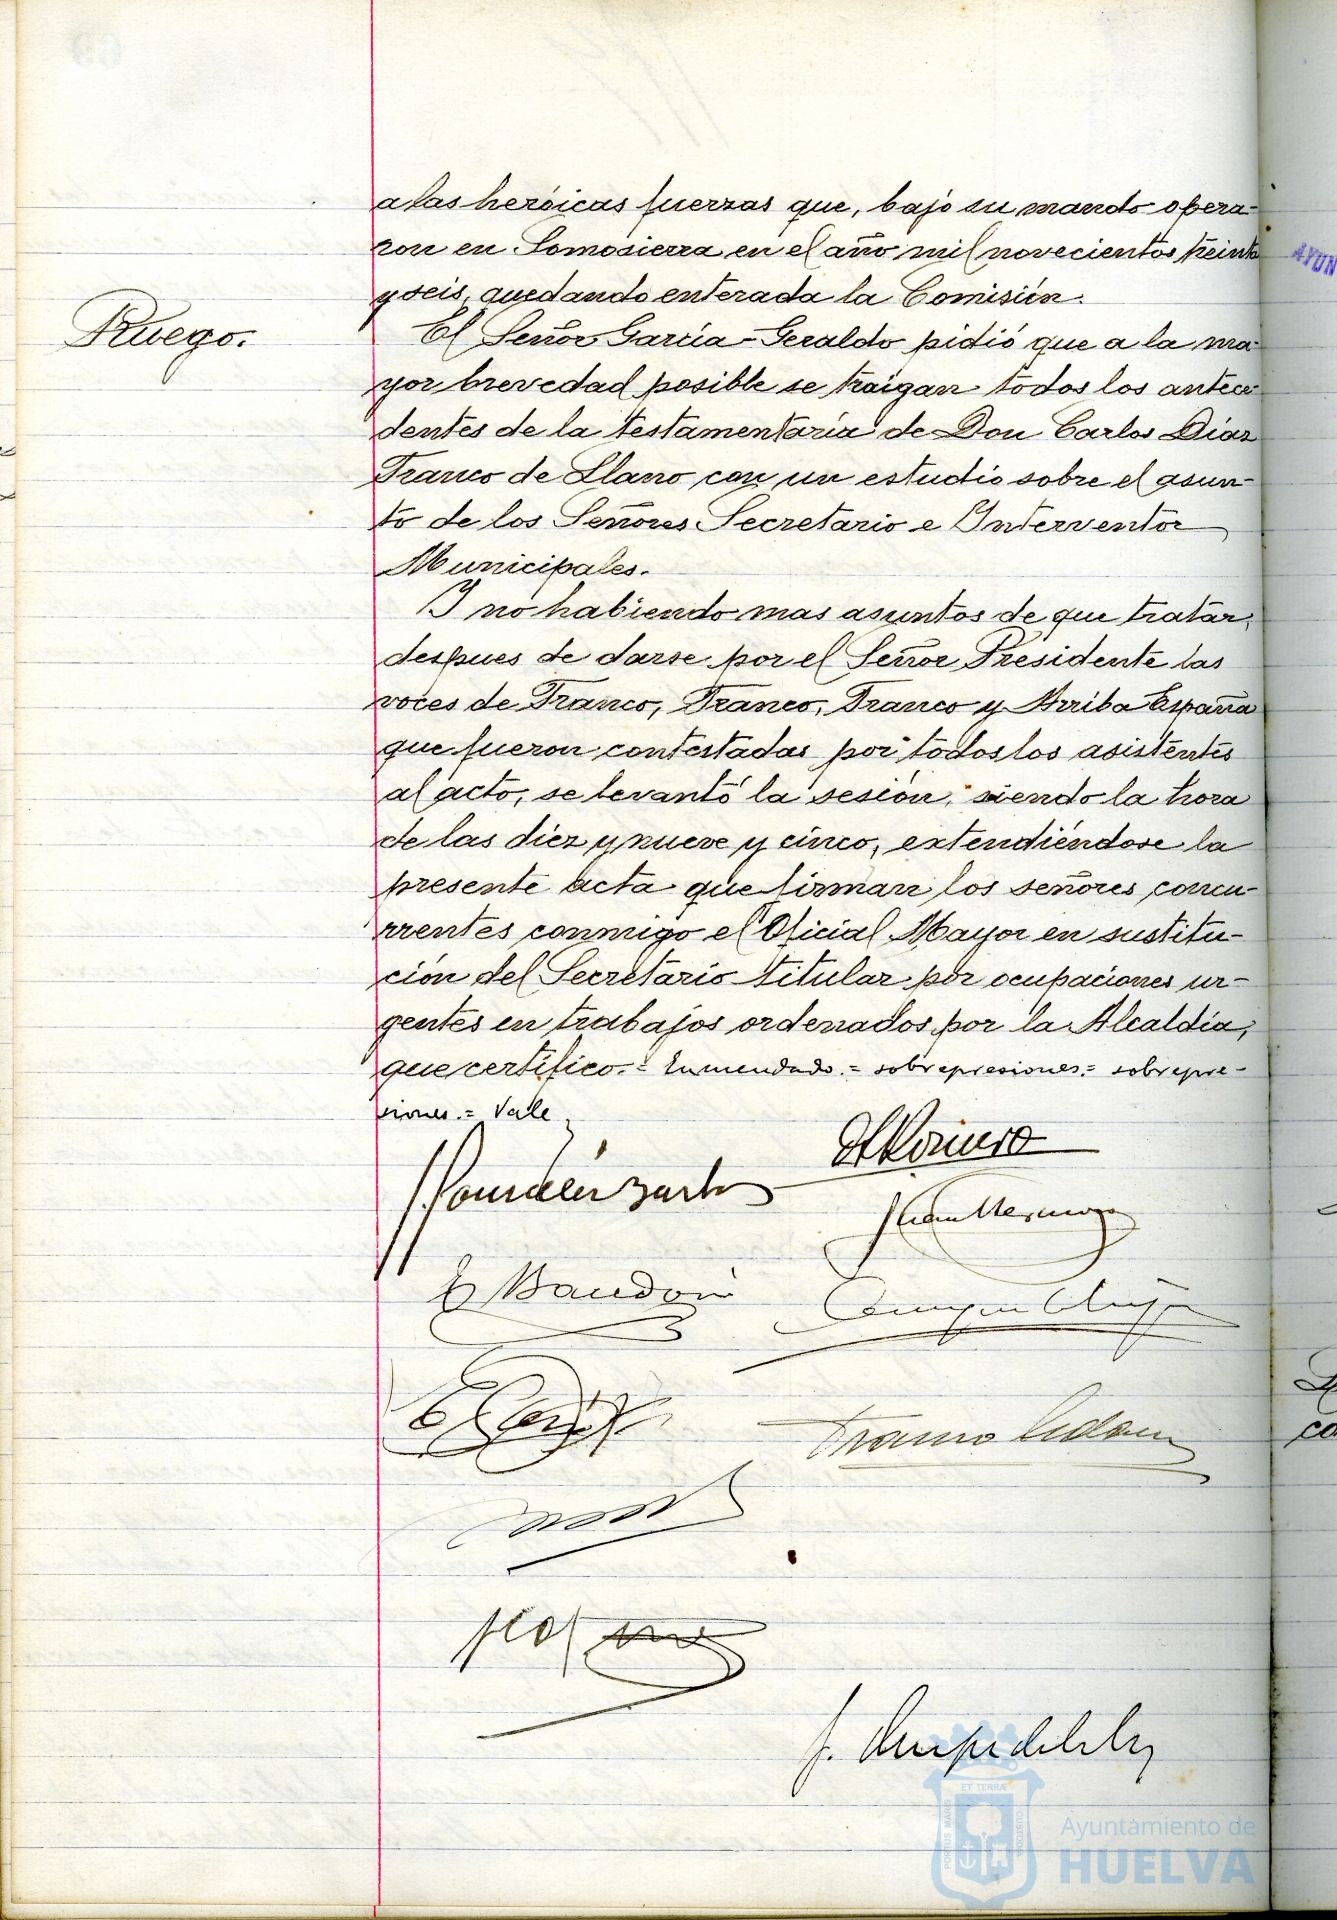 a las heróicas fuerzas que, bajo su mando opera-
ron en Somosierra en el año mil novecientos treinta
y seis, quedando enterada la Comisión.
Ruego.
El Señor García-Geraldo pidió que a la ma-
yor brevedad posible se traigan todos los antece-
dentes de la testamentaría de Don Carlos Díaz
Franco de Llano con un estudio sobre el asun-
to de los Señores Secretario e Interventor
Municipales.
Y no habiendo mas asuntos de que tratar,
despues de darse por el Señor Presidente las
voces de Franco, Franco, Franco y Arriba España
que fueron contestadas por todos los asistentes
al acto, se levantó la sesión, siendo la hora
de las diez y nueve y cinco, extendiéndose la
presente acta que firman los señores concu-
rrentes conmigo el Oficial Mayor en sustitu-
ción del Secretario titular por ocupaciones ur-
gentes en trabajos ordenados por la Alcaldía,
que certifico.= Enmendado.= sobrepresiones.= sobrepre-
siones.= Vale
E Baudoin
ET TERRAE
PORTUS MARIS
CUSTODIA
Ayuntamiento de
HUELVA
AYUN